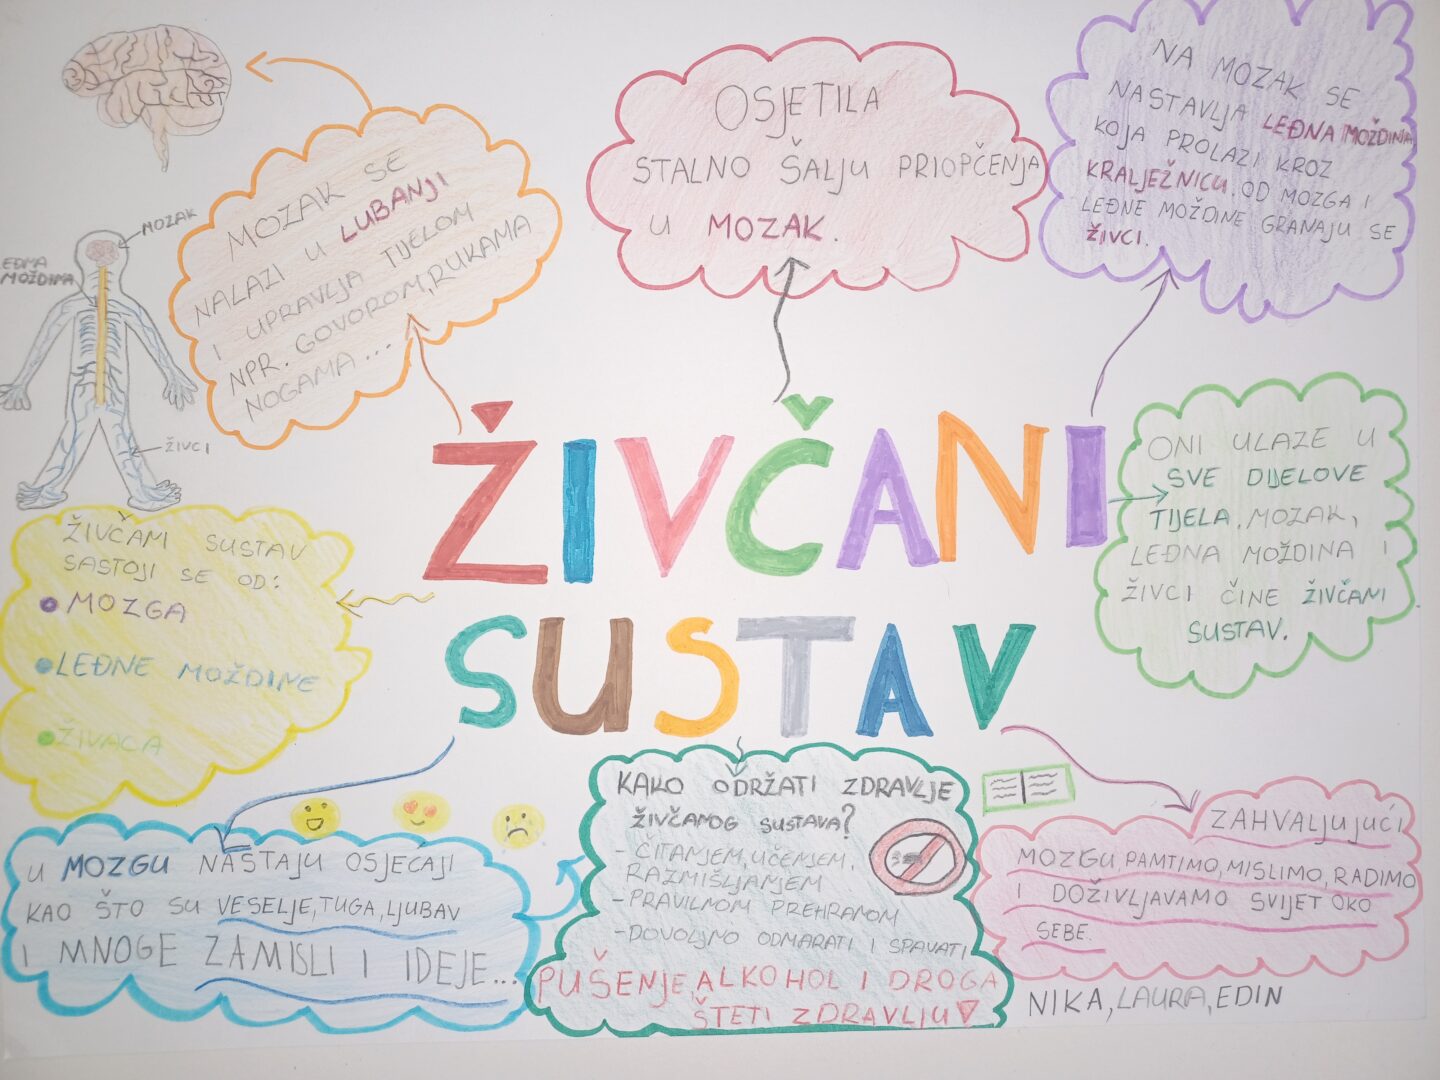 ŽIVČANI
SUSTAV
MOZAK SE
NALAZI U LUBANJI
I UPRAVLJA TIJELOM
NPR. GOVOROM, RUKAMA
NOGAMA...
OSJETILA
STALNO ŠALJU PRIOPČENJA
U MOZAK.
NA MOZAK SE
NASTAVLJA LEĐNA MOŽDINA
KOJA PROLAZI KROZ
KRALJEŽNICU. OD MOZGA I
LEĐNE MOŽDINE GRANAJU SE
ŽIVCI.
MOZAK
EĐNA
MOŽDINA
ŽIVCI
ONI ULAZE U
SVE DIJELOVE
TIJELA. MOZAK,
LEĐNA MOŽDINA I
ŽIVCI ČINE ŽIVČANI
SUSTAV.
ŽIVČANI SUSTAV
SASTOJI SE OD:
MOZGA
LEĐNE MOŽDINE
ŽIVACA
U MOZGU NASTAJU OSJEĆAJI
KAO ŠTO SU VESELJE, TUGA, LJUBAV
I MNOGE ZAMISLI I IDEJE...
KAKO ODRŽATI ZDRAVLJE
ŽIVČANOG SUSTAVA?
- ČITANJEM, UČENJEM,
RAZMIŠLJANJEM
- PRAVILNOM PREHRANOM
- DOVOLJNO ODMARATI I SPAVATI
PUŠENJE, ALKOHOL I DROGA
ŠTETI ZDRAVLJU!
ZAHVALJUJUĆI
MOZGU PAMTIMO, MISLIMO, RADIMO
I DOŽIVLJAVAMO SVIJET OKO
SEBE.
NIKA, LAURA, EDIN